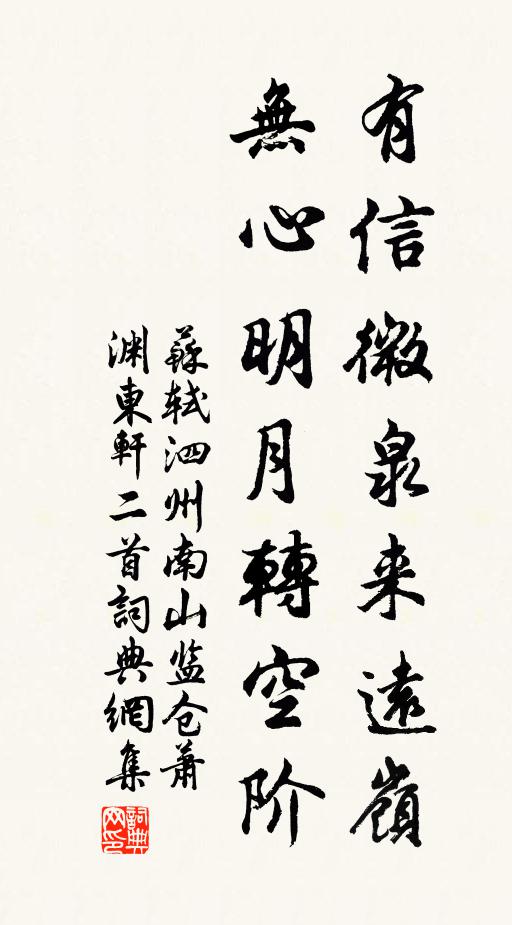 有信微泉来遠嶺
無心明月轉空阶
蘇轼泗州南山监仓萧
渊東軒二首詞典網集
詞典網印